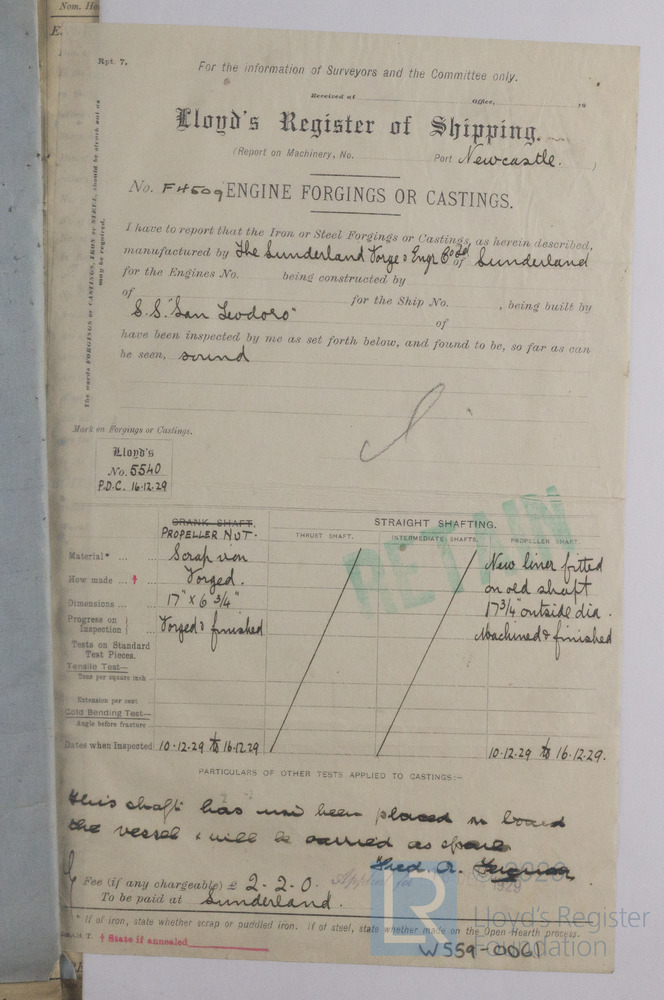 Nom. Ho
E.
Rpt. 7.
For the information of Surveyors and the Committee only.
Received at Office, 19
Lloyd's Register of Shipping.
(Report on Machinery, No. Port Newcastle.)
No. FH509 ENGINE FORGINGS OR CASTINGS.
I have to report that the Iron or Steel Forgings or Castings, as herein described,
manufactured by The Sunderland Forge & Engr Co Ltd of Sunderland
for the Engines No. being constructed by
of for the Ship No. , being built by
S.S. "San Teodoro" of
have been inspected by me as set forth below, and found to be, so far as can
be seen, sound
The words FORGINGS or CASTINGS, IRON or STEEL, should be struck out as
may be required.
Mark on Forgings or Castings.
Lloyd's
No. 5540
P.D.C. 16.12.29
RETAIN
CRANK SHAFT.
PROPELLER NUT.
STRAIGHT SHAFTING.
THRUST SHAFT. INTERMEDIATE SHAFTS. PROPELLER SHAFT.
Material* ... Scrap iron New liner fitted
How made ... † ... Forged. on old shaft
Dimensions ... 17" x 6 3/4" 17 3/4" outside dia.
Progress on Inspection ... Forged & finished Machined & finished
Tests on Standard
Test Pieces.
Tensile Test—
Tons per square inch
Extension per cent
Cold Bending Test—
Angle before fracture
Dates when Inspected 10.12.29 to 16.12.29 10.12.29 to 16.12.29.
PARTICULARS OF OTHER TESTS APPLIED TO CASTINGS:—
This shaft has now been placed on board
the vessel & will be carried as spare
Fred A. Ferguson
Fee (if any chargeable) £ 2.2.0. Applied for 1929
To be paid at Sunderland.
* If of iron, state whether scrap or puddled iron. If of steel, state whether made on the Open Hearth process.
† State if annealed
© 2020
LR
Lloyd's Register
Foundation
W559-0061